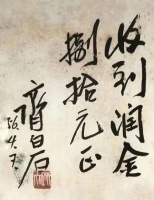 收到润金
捌拾元正
齊白石